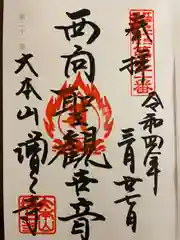 奉拝
令和四年
三月廿七日
西向聖観世音
第二十一番
大本山増上寺